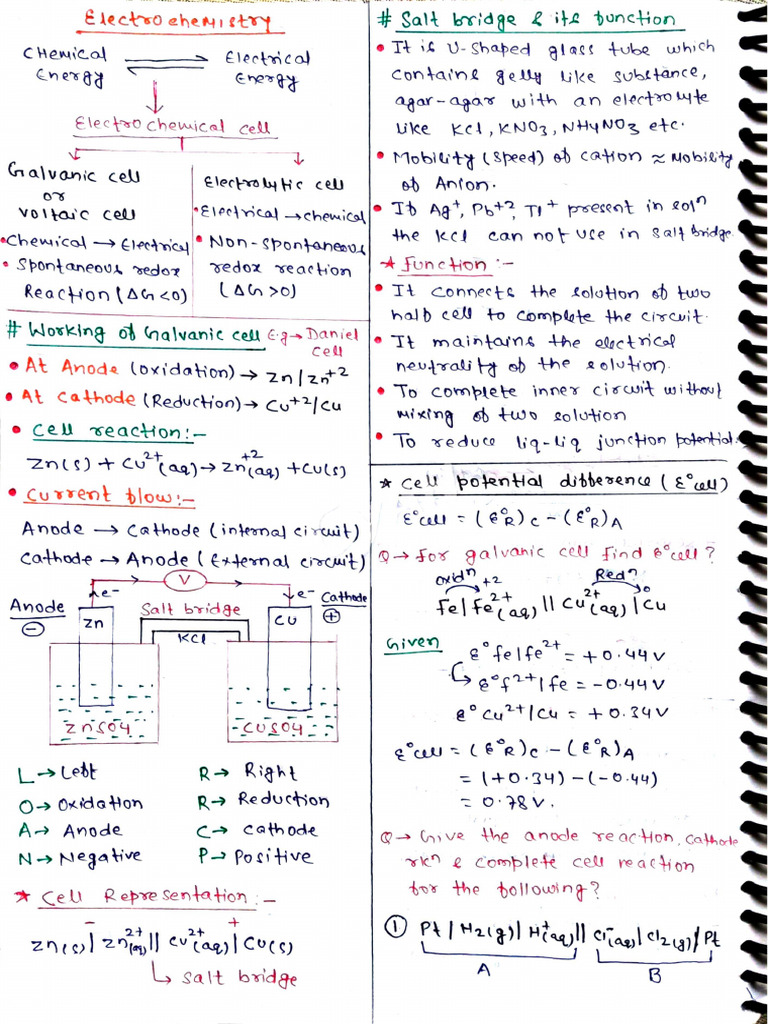 Electrochemistry
Chemical Energy ⇌ Electrical Energy
Electrochemical cell
Galvanic cell
or
Voltaic cell
• Chemical → Electrical
• Spontaneous redox
Reaction (ΔG<0)
Electrolytic cell
• Electrical → chemical
• Non-spontaneous
redox reaction
(ΔG>0)
# Working of Galvanic cell E.g → Daniel
cell
• At Anode (oxidation) → Zn/Zn+2
• At Cathode (Reduction) → Cu+2/Cu
• Cell reaction:-
Zn(s) + Cu2+(aq) → Zn+2(aq) + Cu(s)
• Current flow:-
Anode → Cathode (internal circuit)
Cathode → Anode (External circuit)
V
e-
e-
Anode
-
Zn
Salt bridge
KCl
Cu
Cathode
+
ZnSO4
CuSO4
L → Left
R → Right
O → Oxidation
R → Reduction
A → Anode
C → Cathode
N → Negative
P → Positive
* Cell Representation:-
- +
Zn(s)|Zn2+(aq)||Cu2+(aq)|Cu(s)
↳ Salt bridge
# Salt bridge & its function
• It is U-shaped glass tube which
contains gelly like substance,
agar-agar with an electrolyte
like KCl, KNO3, NH4NO3 etc.
• Mobility (speed) of cation ≈ Mobility
of Anion.
• If Ag+, Pb+2, Tl+ present in soln
the KCl can not use in salt bridge.
* Function:-
• It connects the solution of two
half cell to complete the circuit.
• It maintains the electrical
neutrality of the solution.
• To complete inner circuit without
mixing of two solution
• To reduce liq-liq junction potential.
* Cell potential difference (E°cell)
E°cell = (E°R)C - (E°R)A
Q → For galvanic cell find E°cell?
Oxidn
+2
Redn
0
Fe|Fe2+(aq)||Cu2+(aq)|Cu
Given
E°fe|fe2+ = +0.44V
↳ E°f2+|fe = -0.44V
E°Cu2+|Cu = +0.34V
E°cell = (E°R)C - (E°R)A
= (+0.34) - (-0.44)
= 0.78V.
Q → Give the anode reaction, cathode
rxn & complete cell reaction
for the following?
① Pt|H2(g)|H+(aq)||Cl-(aq)|Cl2(g)|Pt
A
B